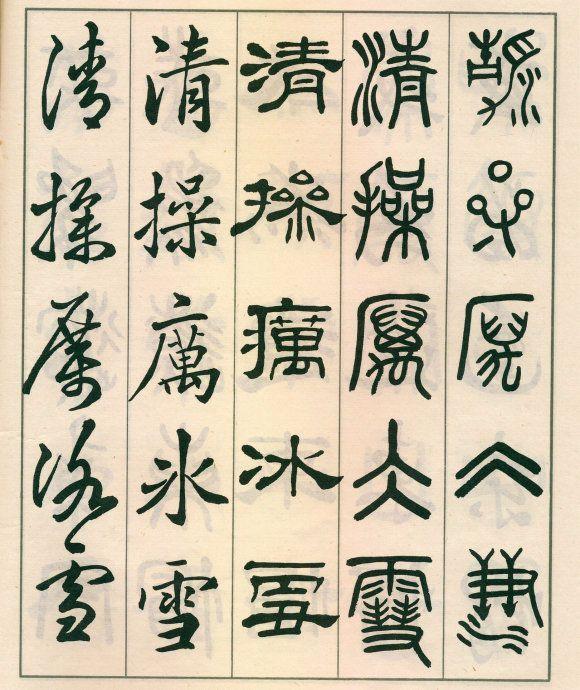 清操厲冰雪
清操厲冰雪
清操癘冰雪
清操厲冰雪
清操厲冰雪